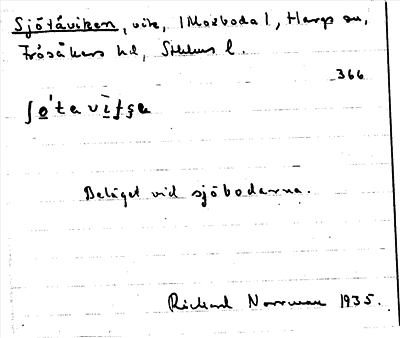 Sjötåviken, vik, (Marboda), Hargs sn,
Frösåkers hd, Sthlms l.
366
Beläget vid sjöbodarna.
Richard Norrman 1935.